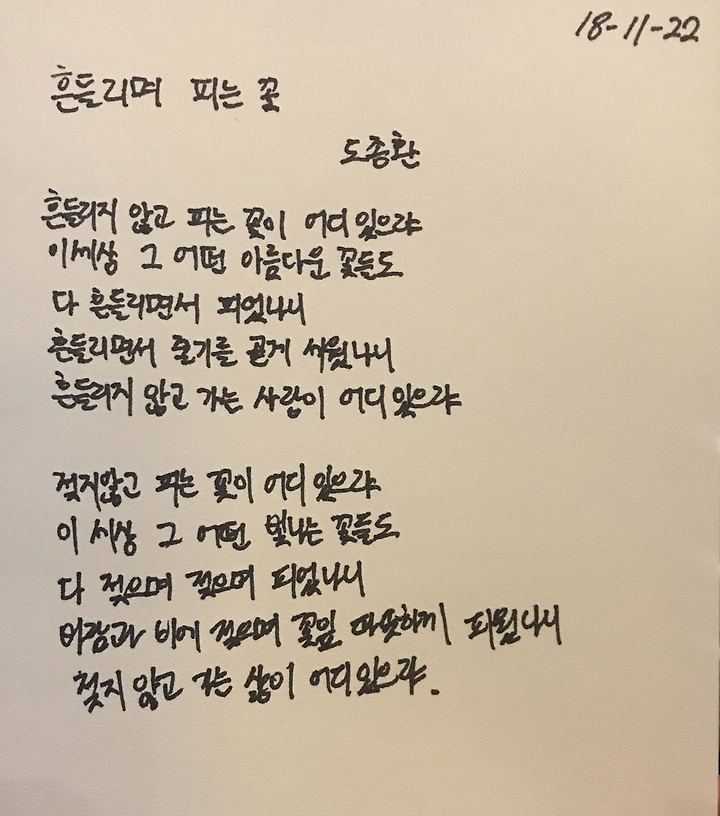 18-11-22
흔들리며 피는 꽃
도종환
흔들리지 않고 피는 꽃이 어디 있으랴
이세상 그 어떤 아름다운 꽃들도
다 흔들리면서 피었나니
흔들리면서 줄기를 곧게 세웠나니
흔들리지 않고 가는 사랑이 어디 있으랴
젖지않고 피는 꽃이 어디 있으랴
이 세상 그 어떤 빛나는 꽃들도
다 젖으며 젖으며 피었나니
바람과 비에 젖으며 꽃잎 따뜻하게 피웠나니
젖지 않고 가는 삶이 어디 있으랴.